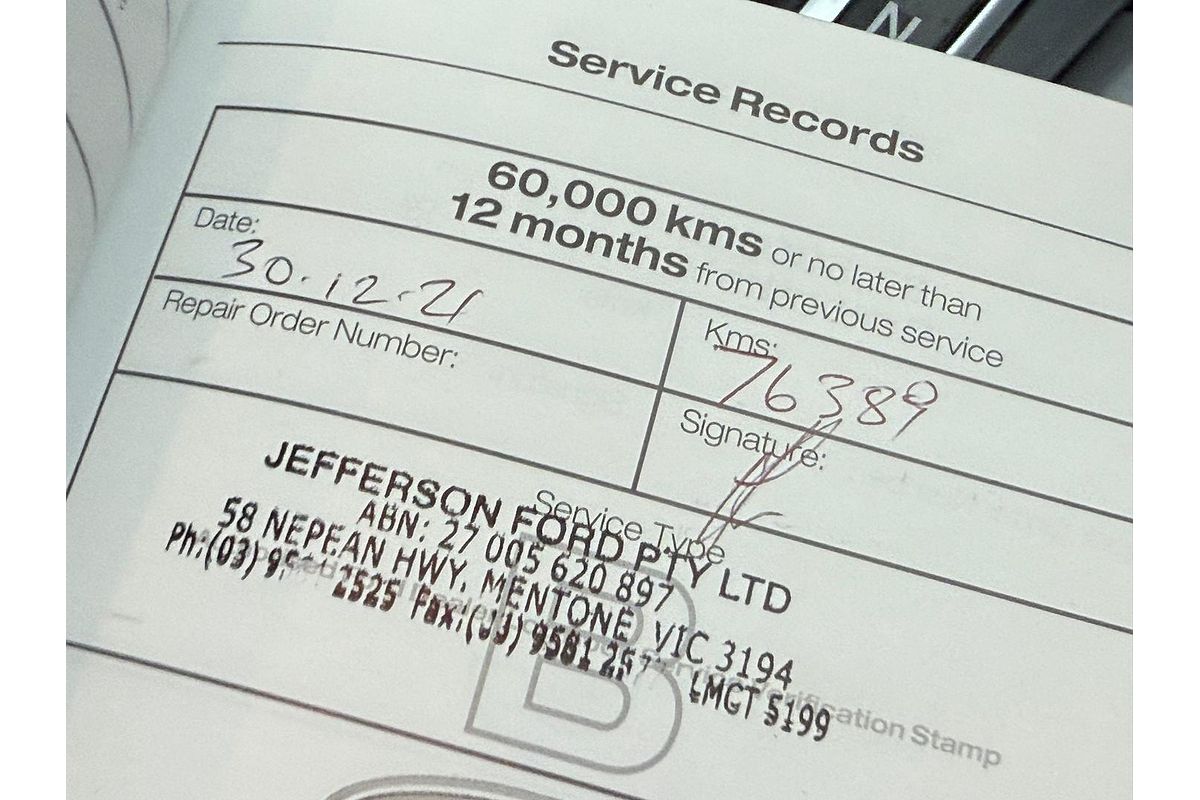 N
Service Records
60,000 kms or no later than
12 months from previous service
Date:
30.12.21
Kms:
76389
Repair Order Number:
Signature:
Service Type
B
JEFFERSON FORD PTY LTD
ABN: 27 005 620 897
58 NEPEAN HWY, MENTONE VIC 3194
Ph:(03) 2525 Fax: 9581 LMCT 5199
Service Verification Stamp